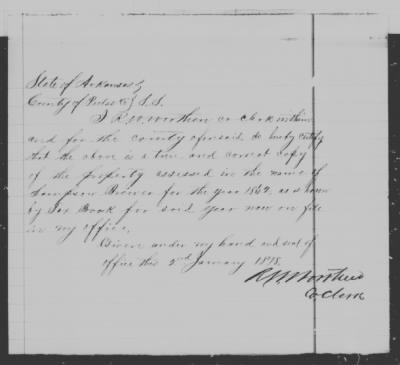 State of Arkansas }
County of Pulaski } S.S.
I R.W. Worthen co clerk within
and for the county aforesaid do hereby certify
that the above is a true and correct copy
of the property assessed in the name of
Thompson for the year 1862. as shown
by Tax Book for said year now on file
in my office.
Given under my hand and seal of
office this 2nd January 1878.
R W Worthen
Co Clerk